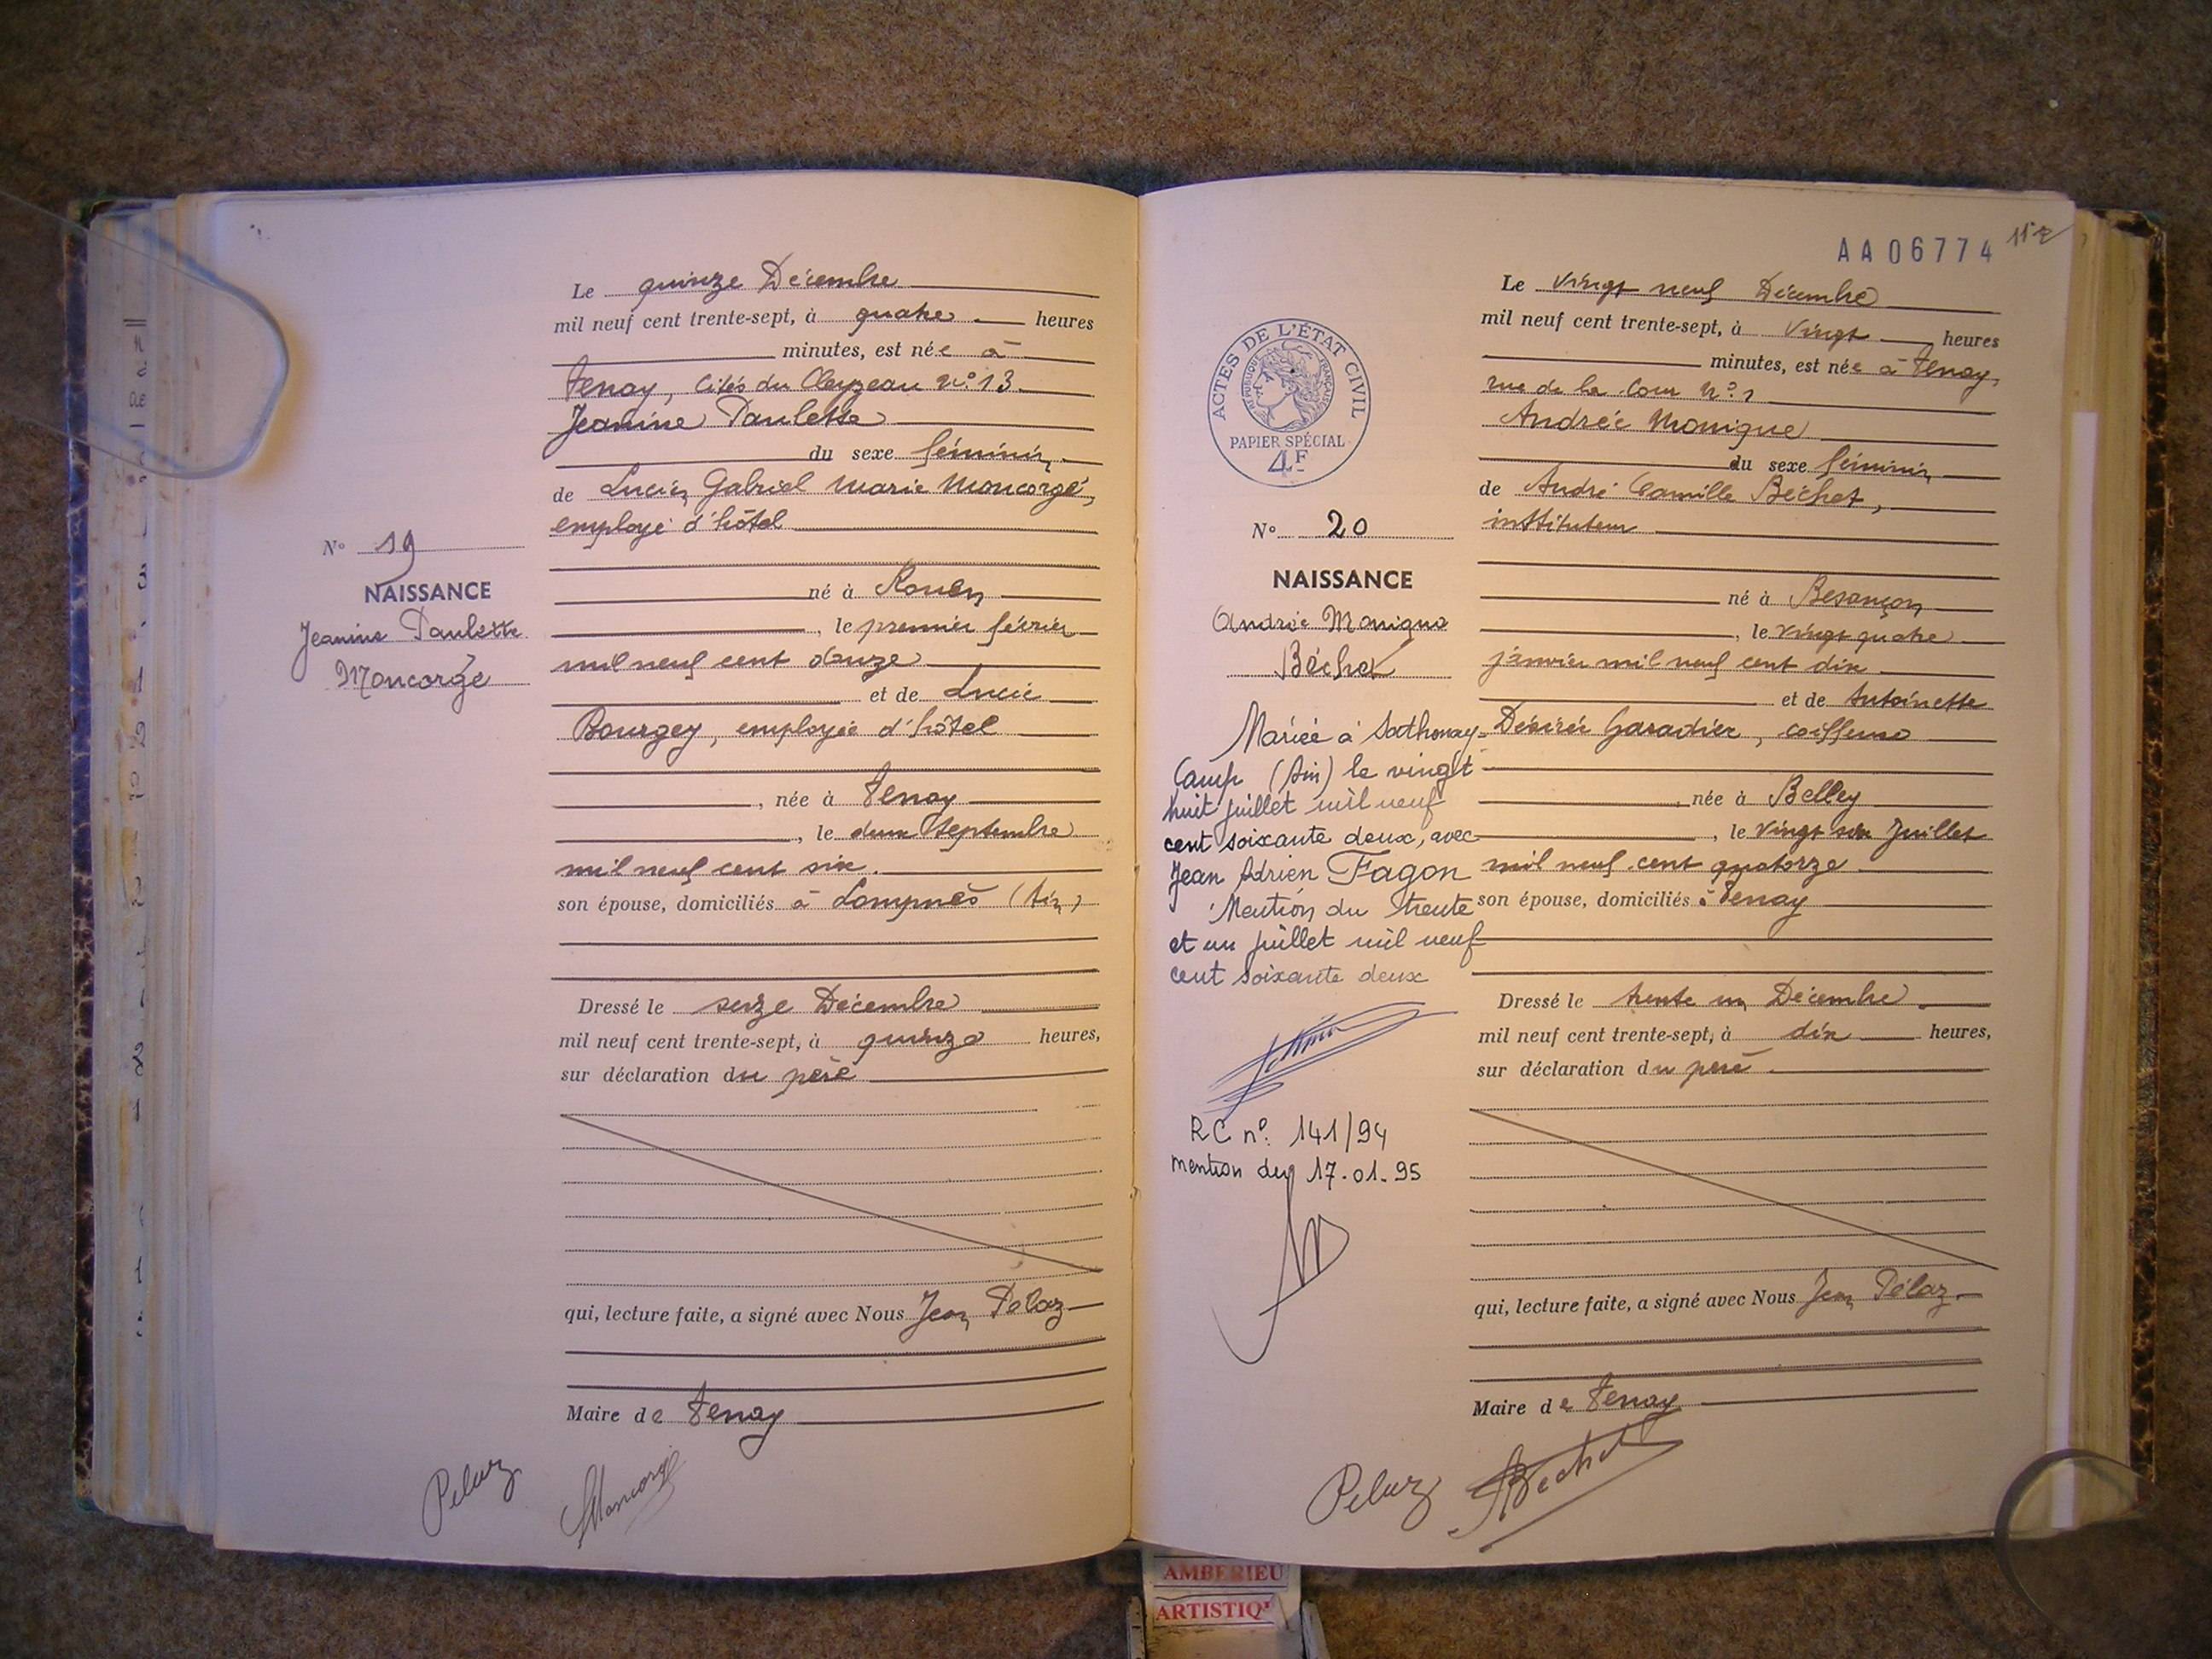 Le quinze Décembre
mil neuf cent trente-sept, à quatre heures
minutes, est née à
Tenay, Cités du Cleyzeau n° 13
Jeanine Paulette
du sexe féminin
de Lucien Gabriel Marie Moncorgé,
employé d'hôtel
N° 19
NAISSANCE
Jeanine Paulette
Moncorgé
né à Rouen
, le premier février
mil neuf cent douze
et de Lucie
Bourgey, employée d'hôtel
, née à Tenay
, le deux Septembre
mil neuf cent six.
son épouse, domiciliés à Lompnès (Ain)
Dressé le seize Décembre
mil neuf cent trente-sept, à quinze heures,
sur déclaration du père
qui, lecture faite, a signé avec Nous Jean Pélaz
Maire de Tenay
Pelaz
Moncorgé
AA06774
Le vingt neuf Décembre
mil neuf cent trente-sept, à vingt heures
minutes, est née à Tenay,
rue de la Cour n° 1
Andrée Monique
du sexe féminin
de André Camille Béchet,
instituteur
ACTES DE L'ÉTAT CIVIL
RÉPUBLIQUE FRANÇAISE
PAPIER SPÉCIAL
4F
N° 20
NAISSANCE
Andrée Monique
Béchet
né à Besançon
, le vingt quatre
janvier mil neuf cent dix
et de Antoinette
Désirée Garadier, coiffeuse
née à Belley
, le vingt six Juillet
mil neuf cent quatorze
son épouse, domiciliés à Tenay
Mariée à Sathonay-
Camp (Ain) le vingt
huit juillet mil neuf
cent soixante deux, avec
Jean Adrien Fagon
Mention du trente
et un juillet mil neuf
cent soixante deux
RC n°: 141/94
mention du 17.01.95
Dressé le trente un Décembre
mil neuf cent trente-sept, à dix heures,
sur déclaration du père.
qui, lecture faite, a signé avec Nous Jean Pélaz
Maire de Tenay
Pelaz
ABechet
AMBERIEU
ARTISTIQ